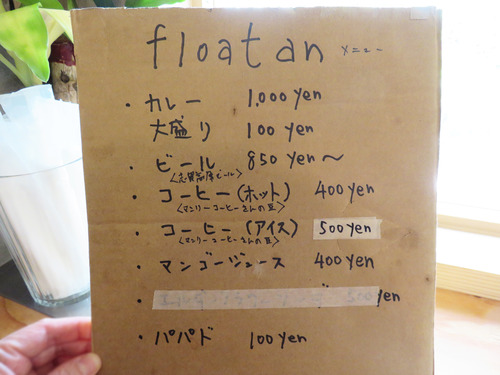 floatan メニュー
・カレー 1,000 yen
大盛り 100 yen
・ビール 850 yen〜
<志賀高原ビール>
・コーヒー(ホット) 400 yen
<マンリーコーヒーさんの豆>
・コーヒー(アイス) 500 yen
<マンリーコーヒーさんの豆>
・マンゴージュース 400 yen
・ 500 yen
・パパド 100 yen